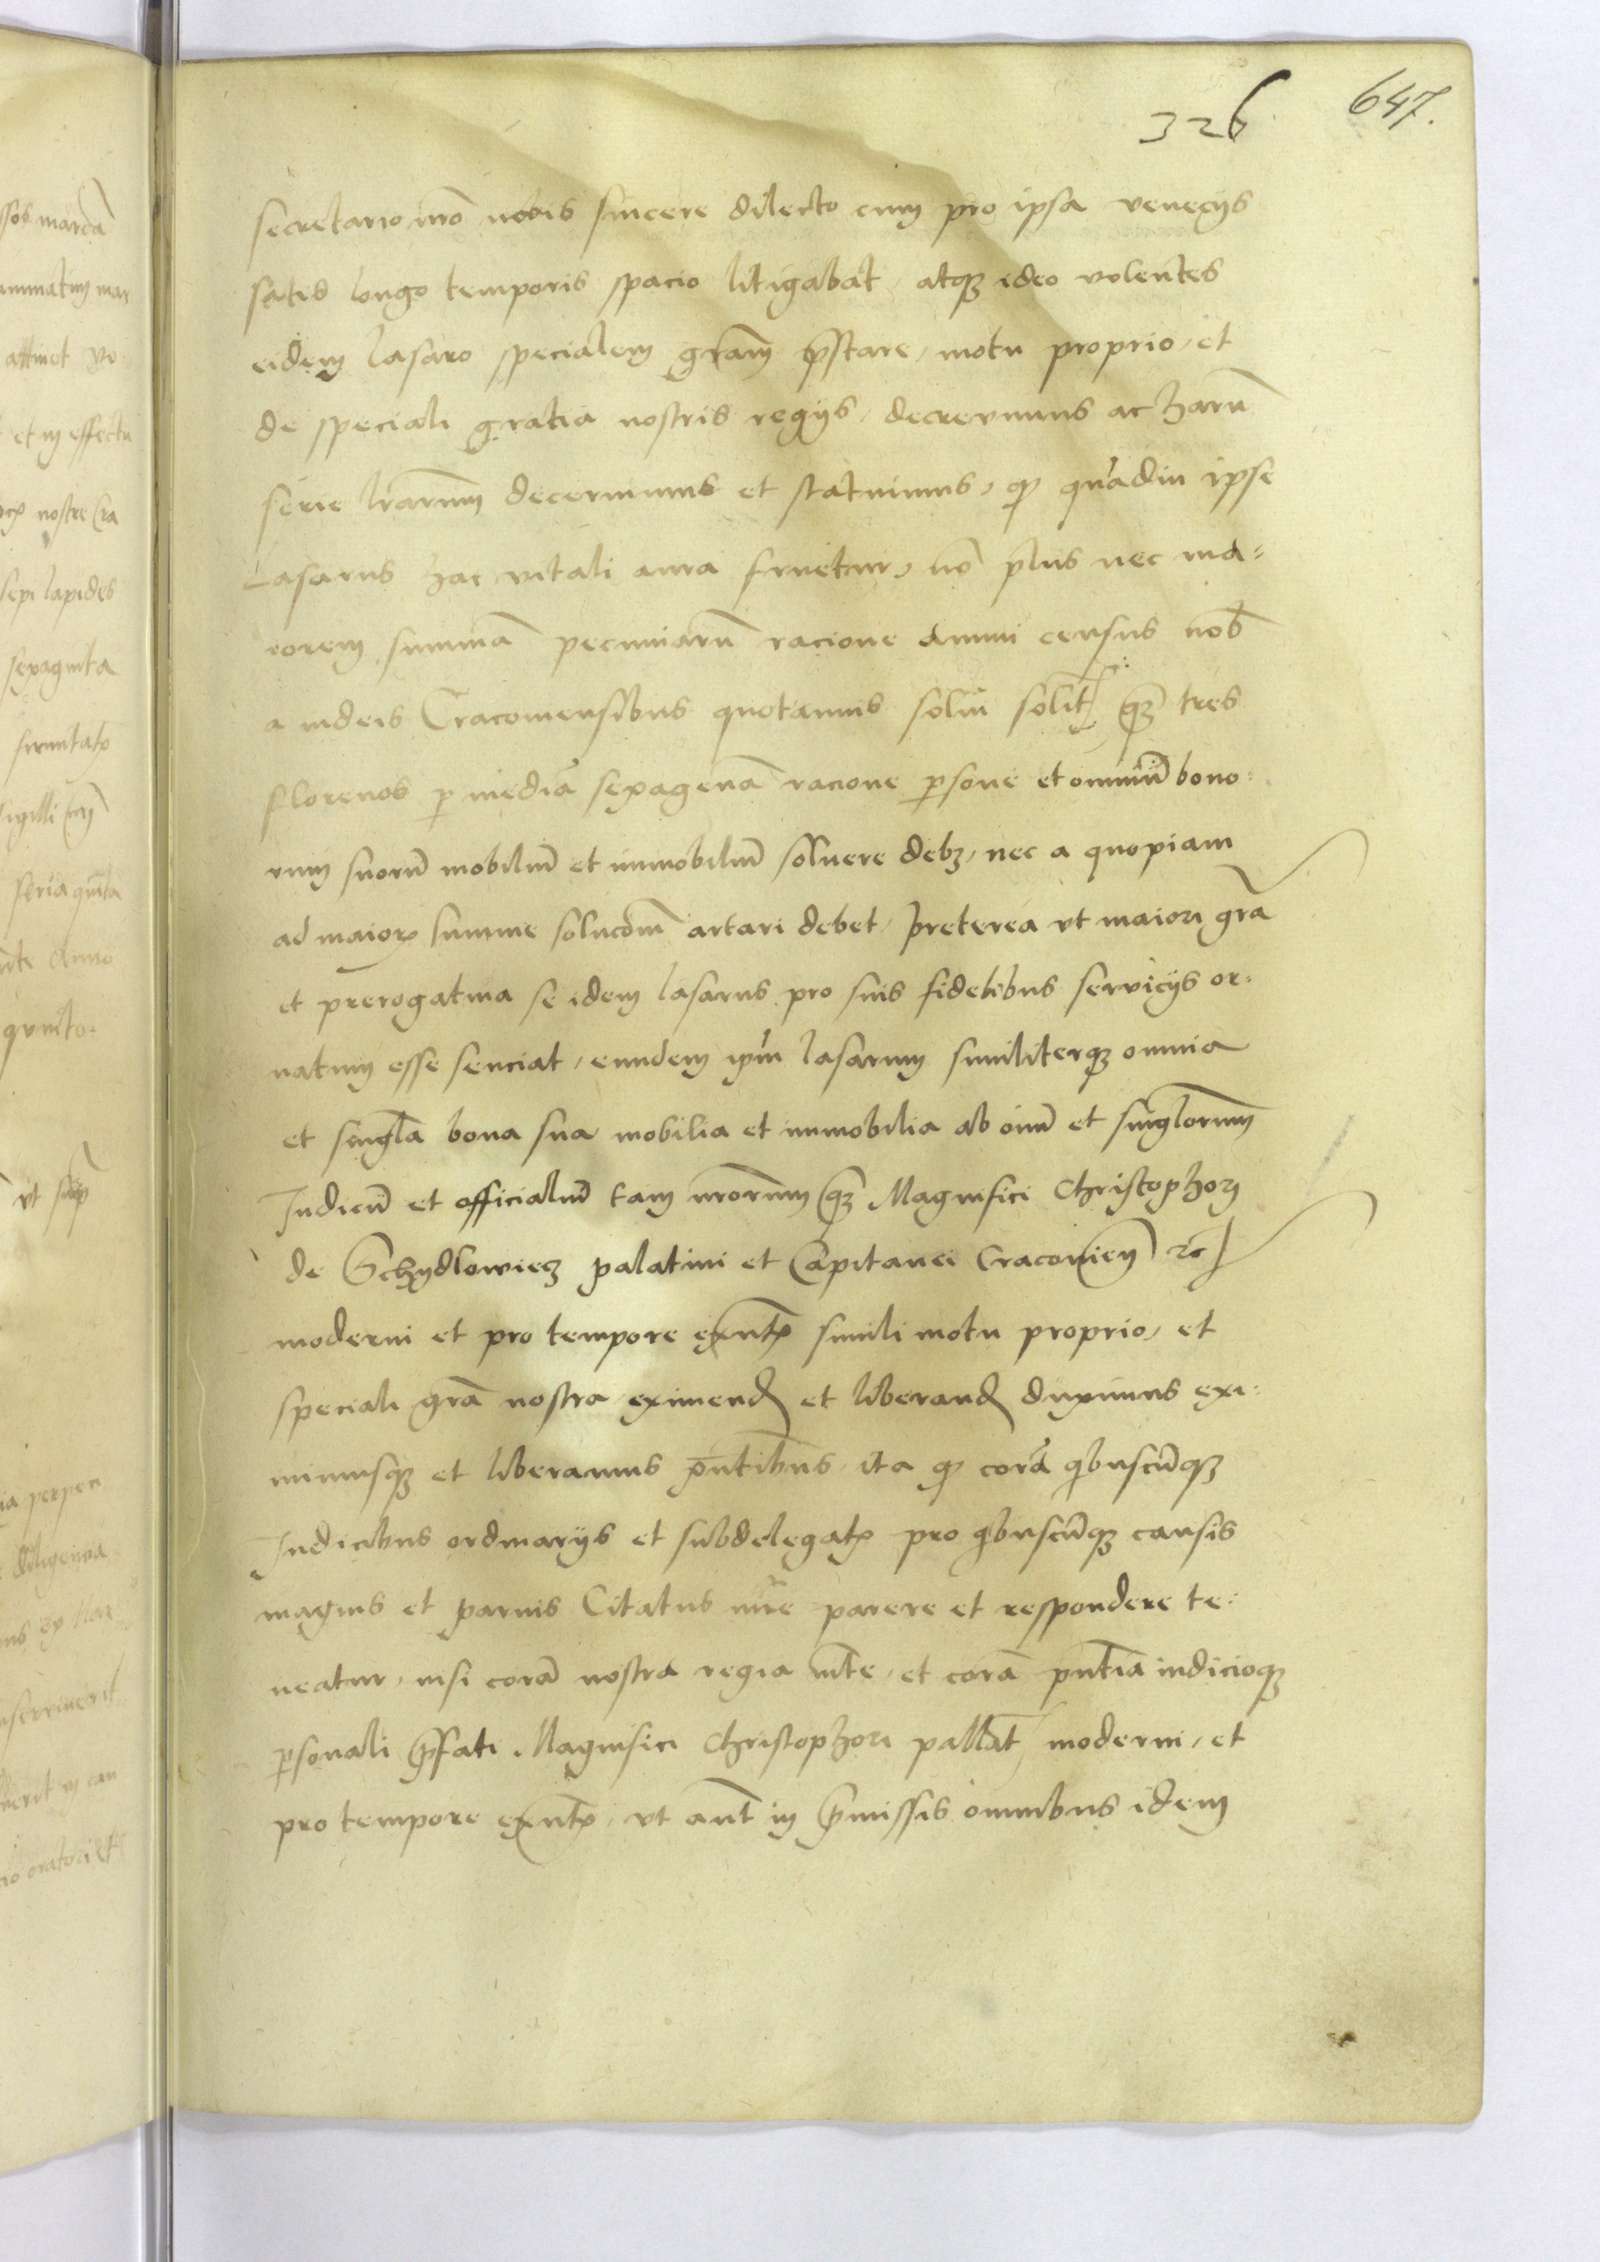 326 647.
secretario nro nobis sincere dilecto cum pro ipsa veneciis
satis longo temporis spacio litigabat, atqz ideo volentes
eidem lasaro specialem gratiam pstare, motu proprio, et
de speciali gratia nostris regiis, decrevimus ac harū
serie lrarum decernimus et statuimus, q quādiu ipse
Lasarus hac vitali aura fruetur, nō plus nec ma=
iorem summā pecuniarū racione annui census nob
a iudeis Cracoviensibus quotannis solui solit qz tres
florenos p mediā sexagenā racione psone et omniū bono=
rum suorū mobiliū et immobiliū soluere debz, nec a quopiam
ad maior summe solucōm artari debet, preterea vt maiori gra
et prerogatiua se idem lasarus pro suis fidelibus serviciis or=
natum esse senciat, eundem ipm lasarum similiterqz omnia
et singla bona sua mobilia et immobilia ab oim et singlorum
Iudicū et officialiū tam nrorum qz Magnifici Christophori
de Schydlowiecz palatini et Capitanei Cracovien etc
moderni et pro tempore exnt simili motu proprio, et
speciali gra nostra eximend et liberand duximus exi=
mimusqz et liberamus pntibus, ita q corā qbuscūqz
Iudicibus ordinariis et subdelegat pro qbuscūqz causis
magnis et paruis Citatus iure parere et respondere te=
neatur, nisi corā nostra regia mte, et corā pntia iudicioqz
psonali pfati Magnifici Christophori pallat moderni, et
pro tempore exnt, vt aut in pmissis omnibus idem